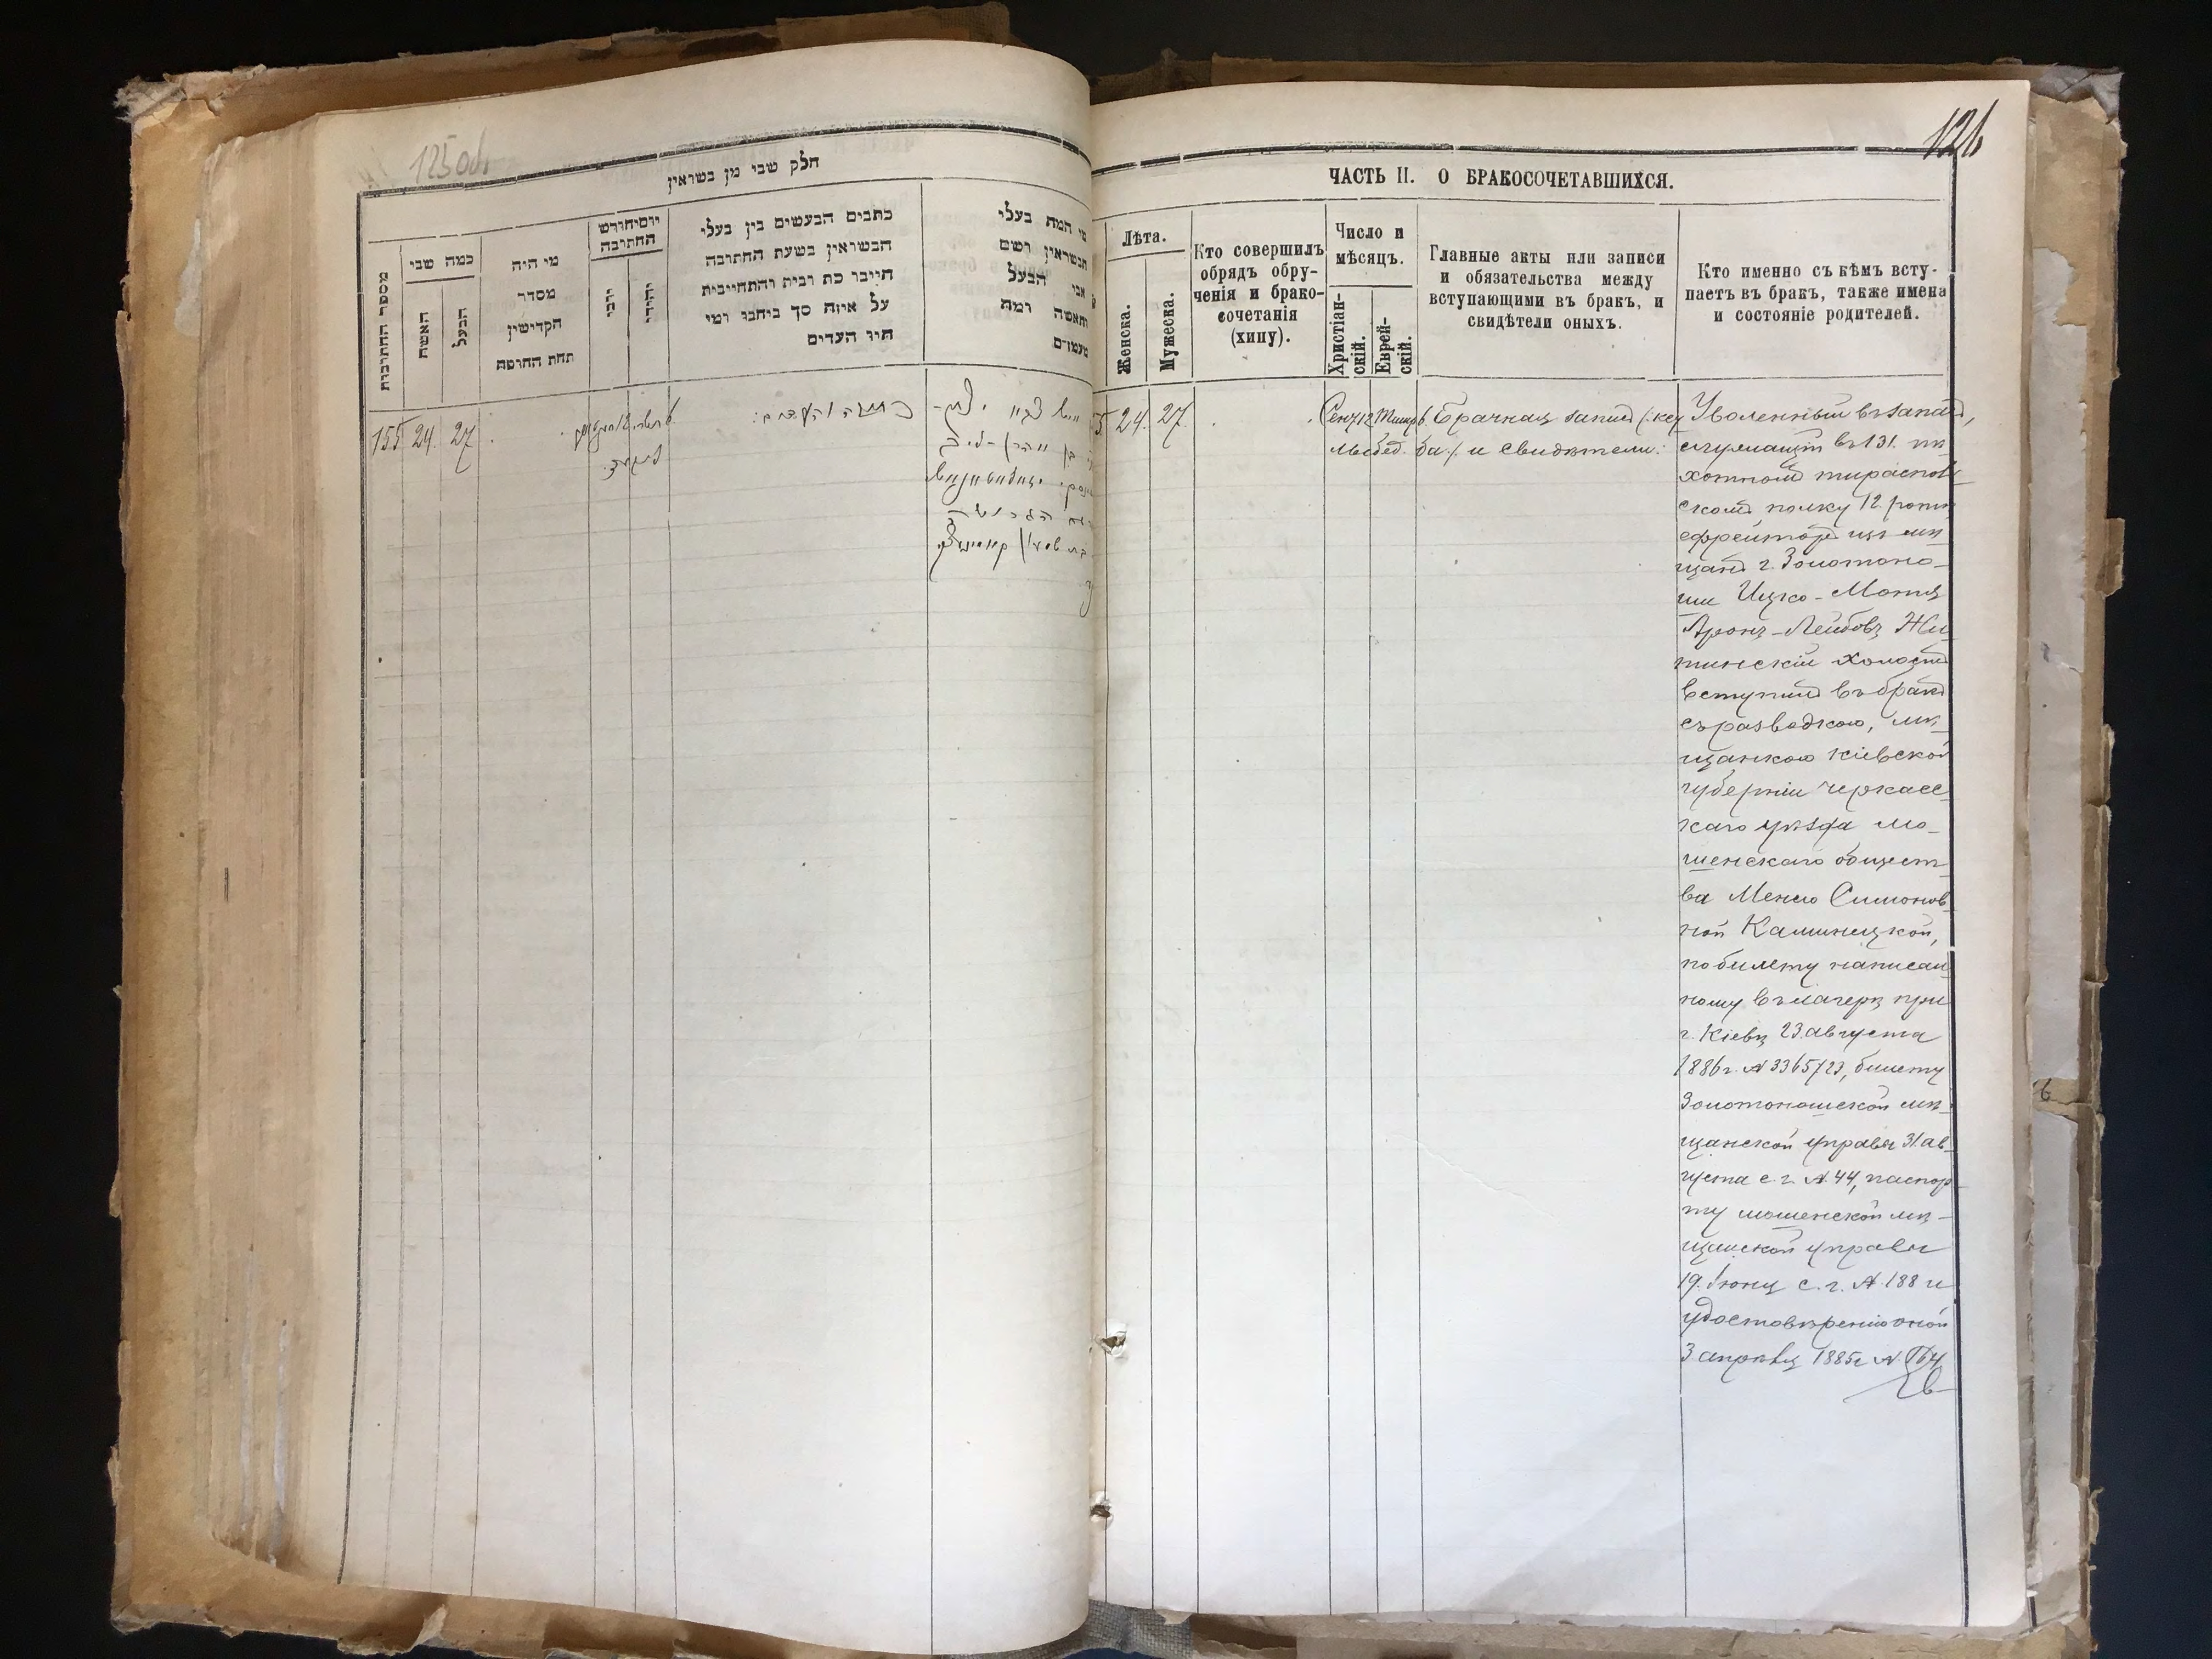 125 об.
חלק שבי מן בשראין
מספר החתובית
כמה שבי
האשה
הבעל
מי היה
מסדר
הקדישין
תחת החופה
יום יחורש
החתובה
כתבים הבעשים בין בעלי
הבשראין בשעת החתובה
חייבו כת רבית והתחייבית
על איזה סך ביחבו ומי
היו העדים
מי המה בעלי
הבשראין ושם
אבי הבעל
והאשה ומה
מעמדם
155 24. 27
126
ЧАСТЬ II. О БРАКОСОЧЕТАВШИХСЯ.
Лѣта.
Женска.
Мужеска.
Кто совершилъ
обрядъ обру-
ченія и брако-
сочетанія
(хипу).
Число и
мѣсяцъ.
Христіан-
скій.
Еврей-
скій.
Главные акты или записи
и обязательства между
вступающими въ бракъ, и
свидѣтели оныхъ.
Кто именно съ кѣмъ всту-
паетъ въ бракъ, также имена
и состояніе родителей.
5 24. 27. Брачная запись (:кету
ба:) и свидѣтели:
Уволенный въ запасъ,
служащій въ 131. пѣ-
хотномъ тираспол-
скомъ полку 12. роты
ефрейторъ изъ мѣ-
щанъ г. Золотоно-
ши Ицко-Мотя
Аронъ-Лейбовъ Жи-
тинскій холостъ
вступилъ въ бракъ
съ разводкою, мѣ-
щанкою Кіевской
губерніи Черкасс-
каго уѣзда Мо-
шенскаго общест-
ва Менею Симонов-
ной Каминецкой,
по билету написан-
ному въ лагерѣ при
г. Кіевѣ 23. августа
1886 г. № 3365/23, билету
Золотоношской мѣ-
щанской управы 31. ав-
густа с. г. № 44, паспор-
ту мошенской мѣ-
щанской управы
19. Іюня с. г. № 188 и
удостовѣренію оной
3 апрѣля 1885 г. №